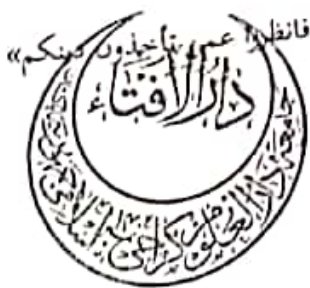 فانظروا عمن تأخذون دينكم»
دَارُ الْاِفْتَاء
جامعہ دارالعلوم کراچی